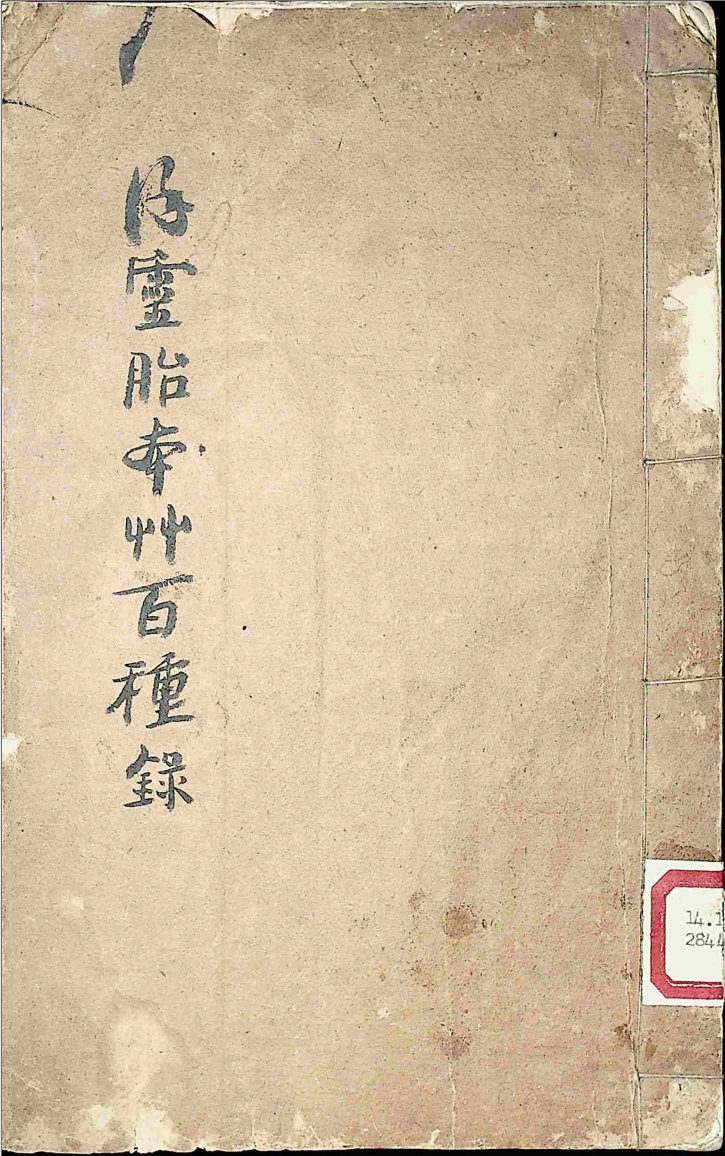 徐靈胎本艸百種錄
14.1
2844